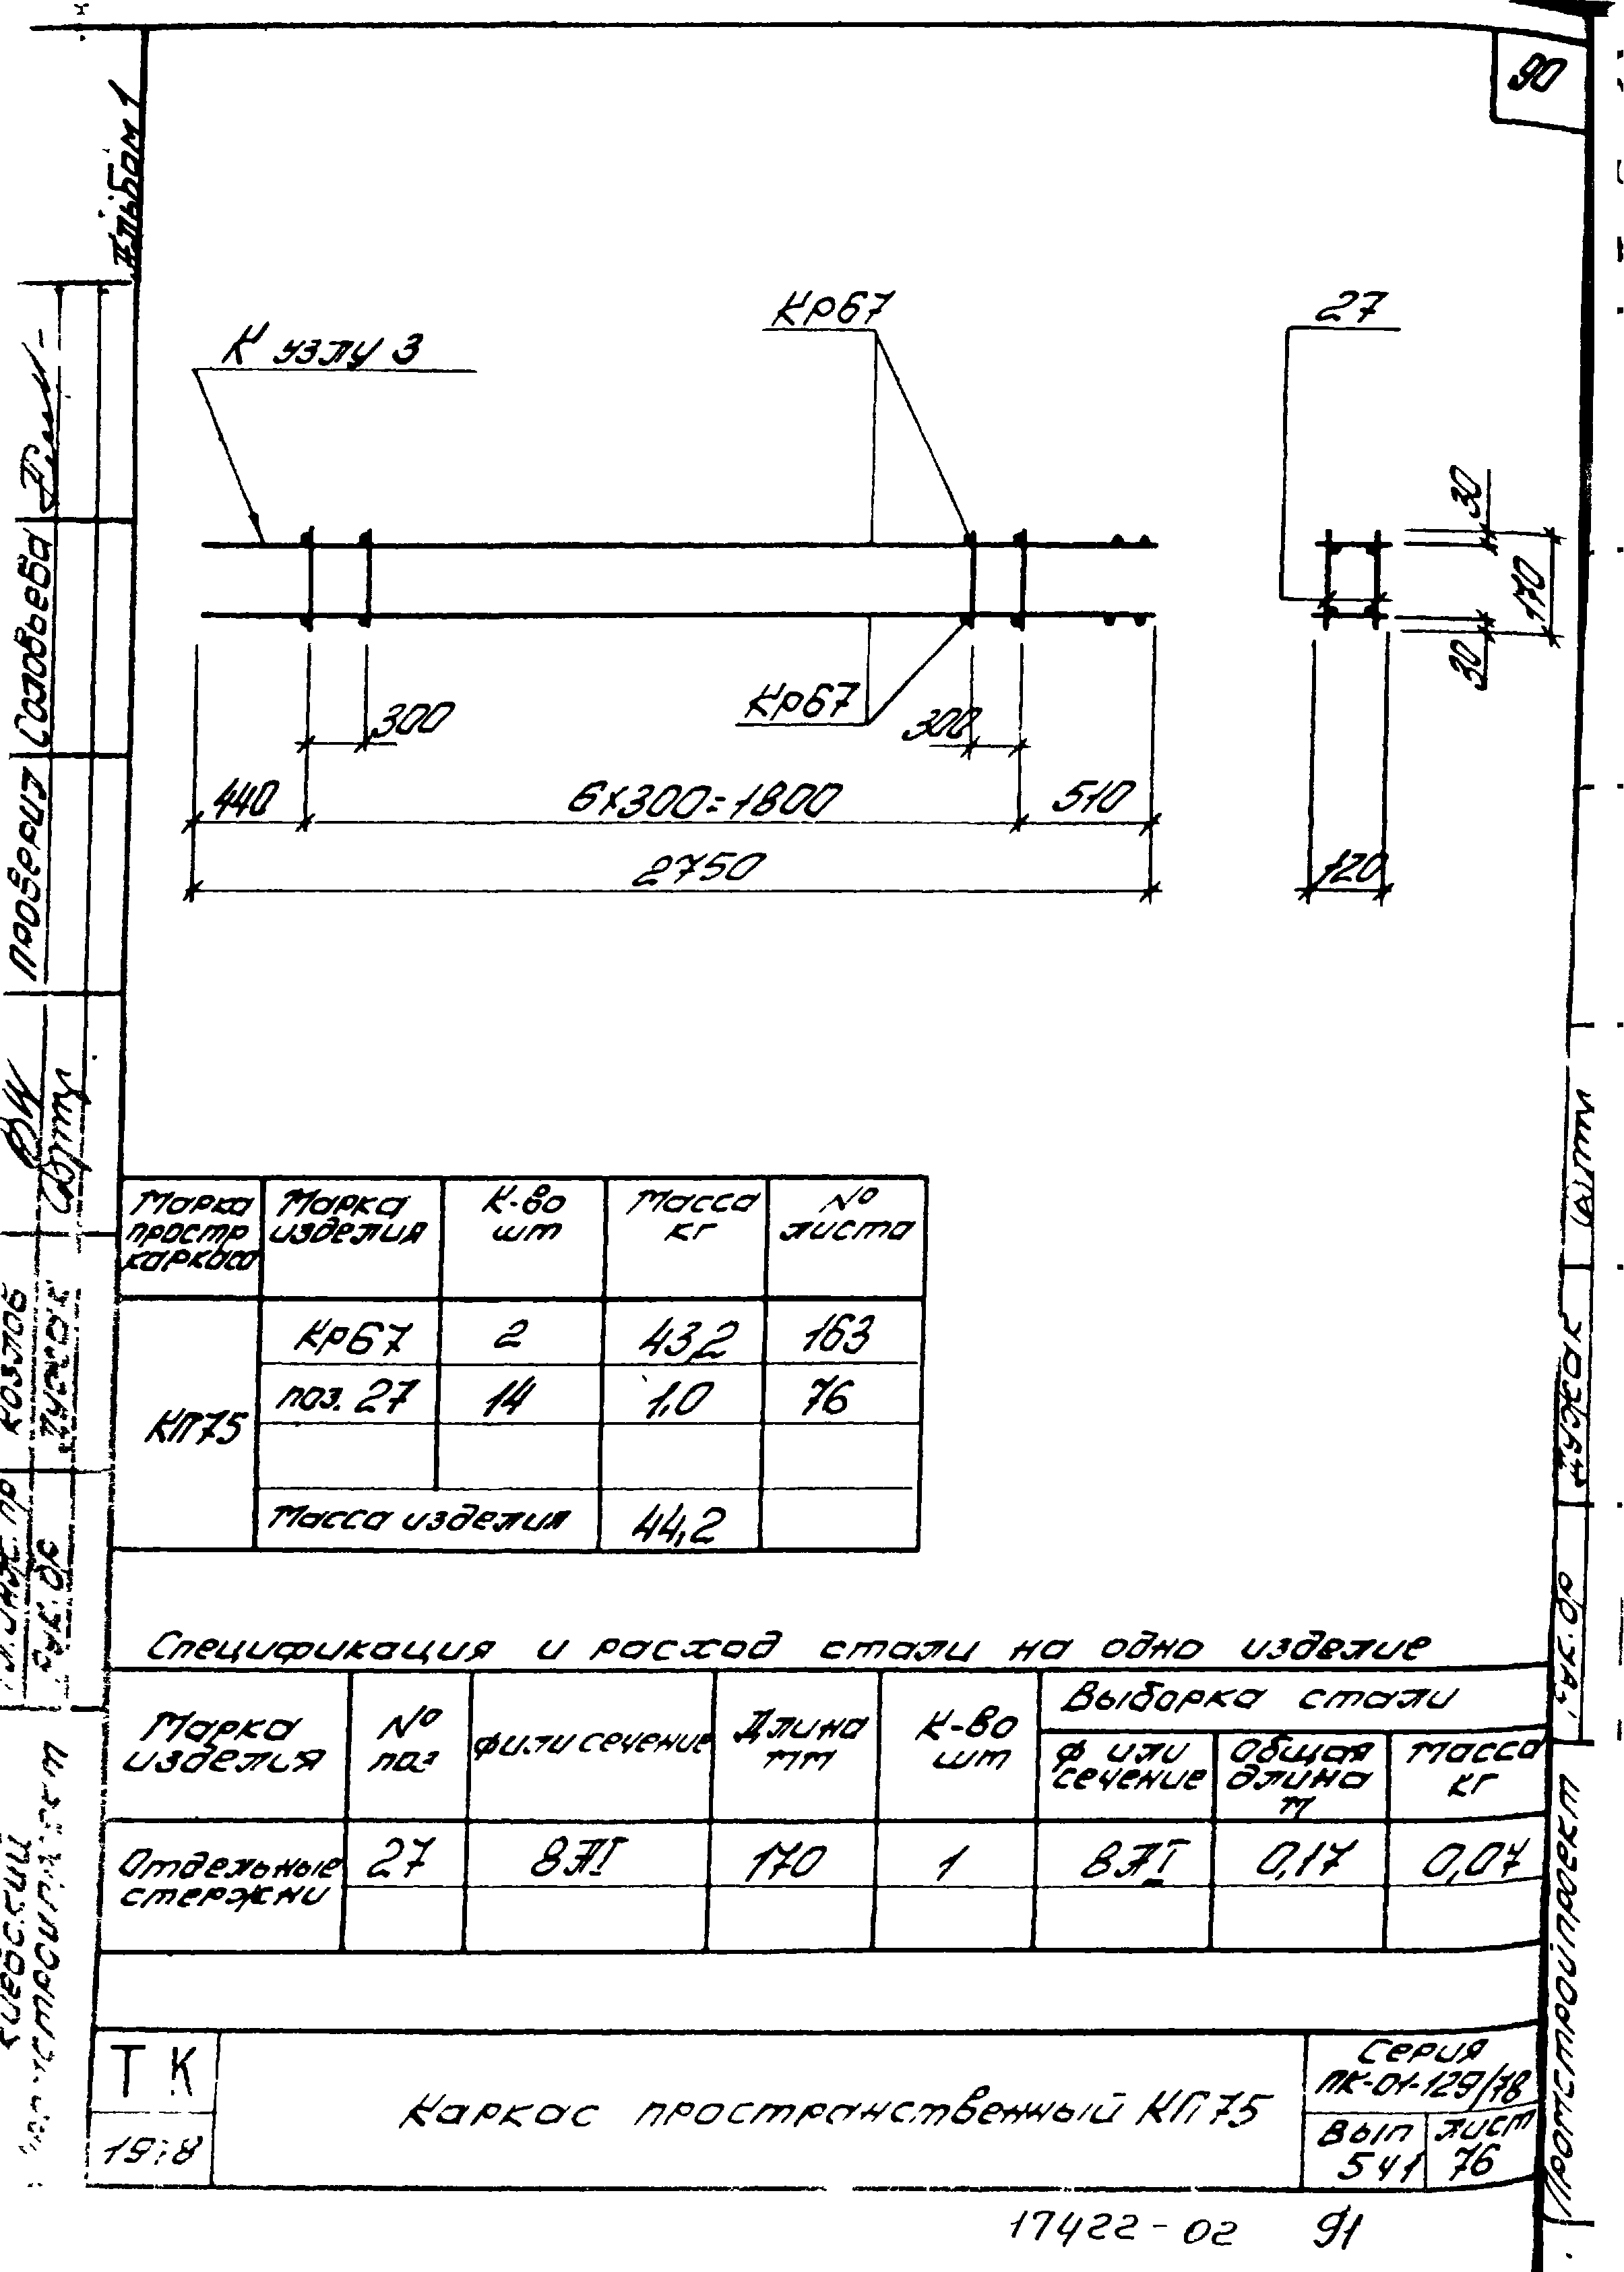 90
Альбом 1
К узлу 3
Кр67
27
30
170
30
300
Кр67
300
440
6×300=1800
510
2750
120
Марка простр каркаса
Марка изделия
К-во шт
Масса кг
№ листа
КП75
Кр67 2 43,2 163
поз. 27 14 1,0 76
Масса изделия 44,2
Спецификация и расход стали на одно изделие
Марка изделия
№ поз
ф или сечение
Длина мм
К-во шт
Выборка стали
ф или сечение
Общая длина м
Масса кг
Отдельные стержни
27 8АI 170 1 8АI 0,17 0,07
ТК
1978
Каркас пространственный КП75
Серия
ПК-01-129/78
Вып
5 ч 1
Лист
76
17422-02 91
Проверил Соловьева
Козлов
Рук. бр
Киевский
Промстройпроект